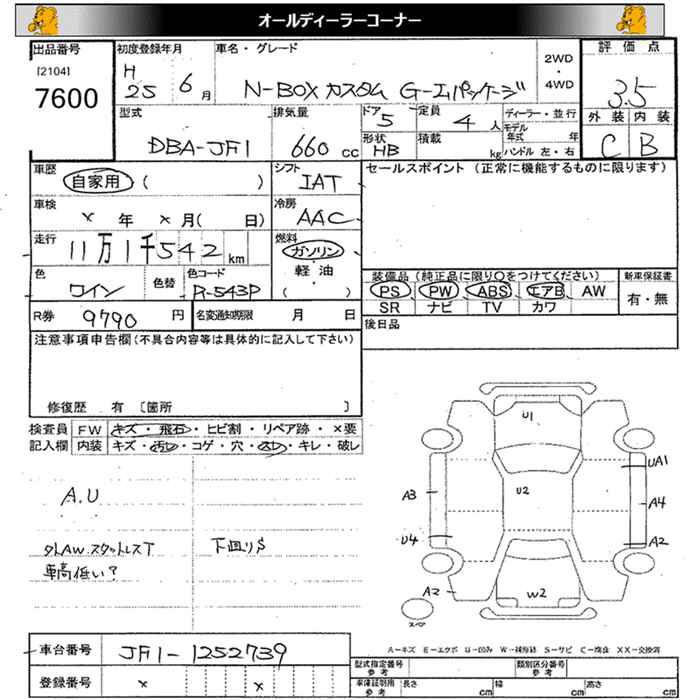 オールディーラーコーナー
出品番号
[2104]
7600
初度登録年月
H 25 6月
車名・グレード
N-BOX カスタム G-エアパッケージ
2WD
・
4WD
評価点
3.5
外装 内装
C B
型式
DBA-JF1
排気量
660cc
ドア
5
定員
4人
ディーラー・並行
モデル年式 年
ハンドル 左・右
形状
HB
積載
kg
車歴
自家用 ( )
シフト
IAT
セールスポイント (正常に機能するものに限ります)
車検
× 年 × 月( 日)
冷房
AAC
走行
11万1千542km
燃料
ガソリン
軽油
( )
色
ワイン
色替
色コード
R-543P
装備品 (純正品に限り○をつけてください)
PS PW ABS エアB AW
SR ナビ TV カワ
新車保証書
有・無
R券
9790円
名変通知期限 月 日
後日品
注意事項申告欄(不具合内容等は具体的に記入して下さい)
修復歴 有 〔箇所 〕
検査員記入欄
FW キズ・飛石・ヒビ割・リペア跡・×要
内装 キズ・汚レ・コゲ・穴・スレ・キレ・破レ
A.U
外AW.スタットレスT
車高低い?
下回りS
U1
U2
W2
A3
U4
A2
UA1
A4
A2
スペア
A-キズ E-エクボ U-凹み W-補修跡 S-サビ C-腐食 XX-交換済
車台番号
JF1-1252739
登録番号
× ×
型式指定番号
参考
類別区分番号
参考
車庫証明用
参考
長さ cm
幅 cm
高さ cm